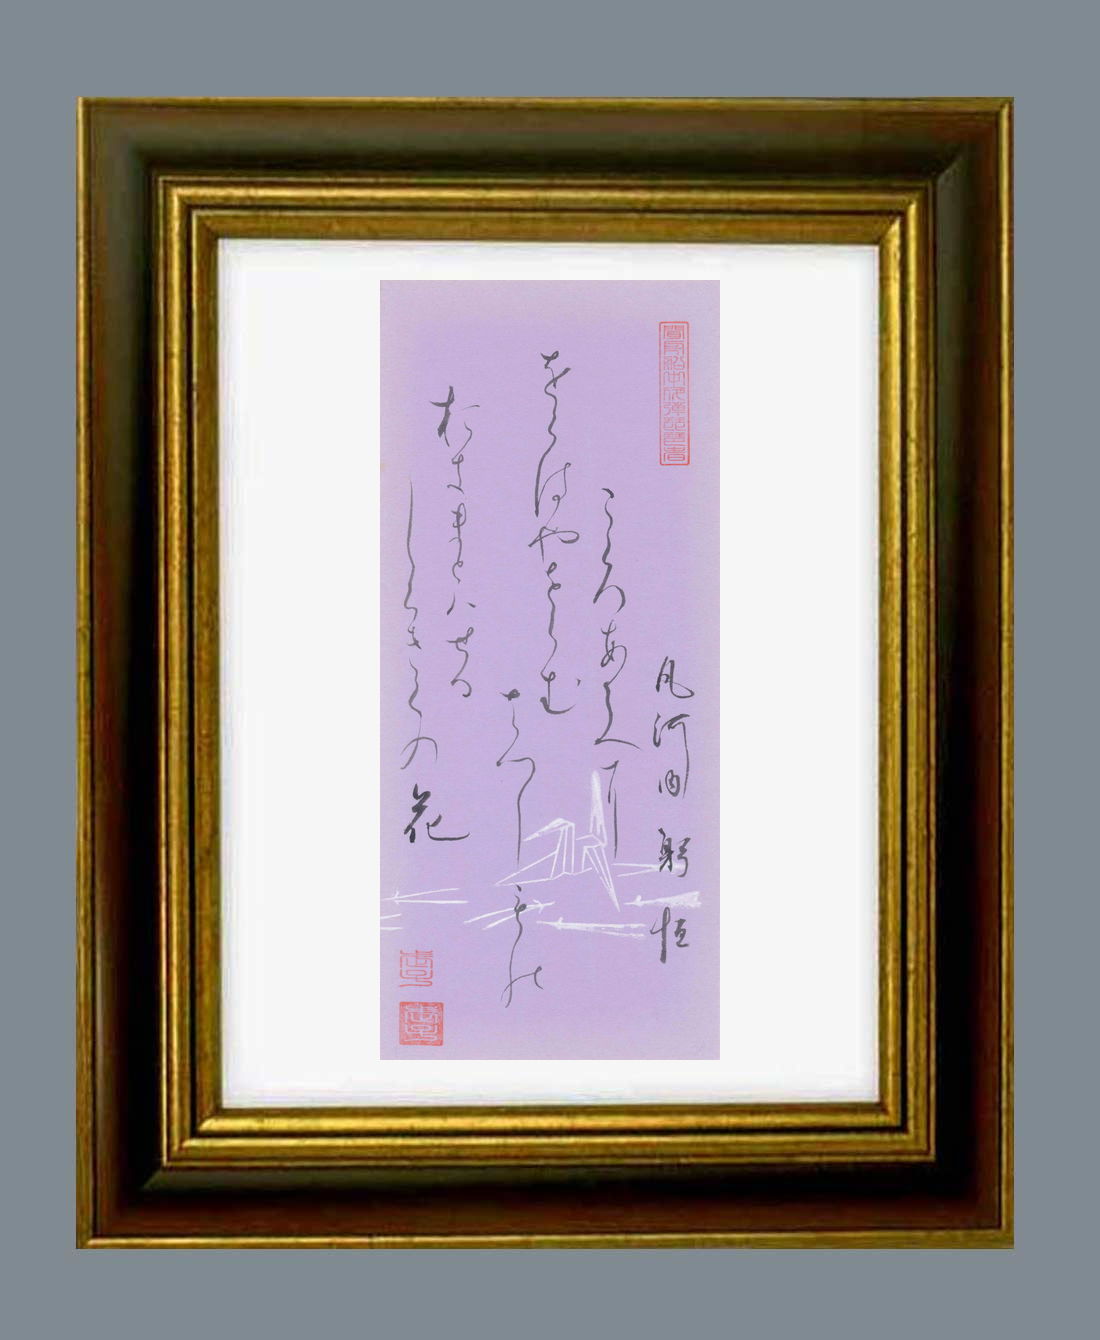 凡河内躬恒
こゝろあてに
をらはやをらむ
はつしもの
おきまとはせる
しらきくの花